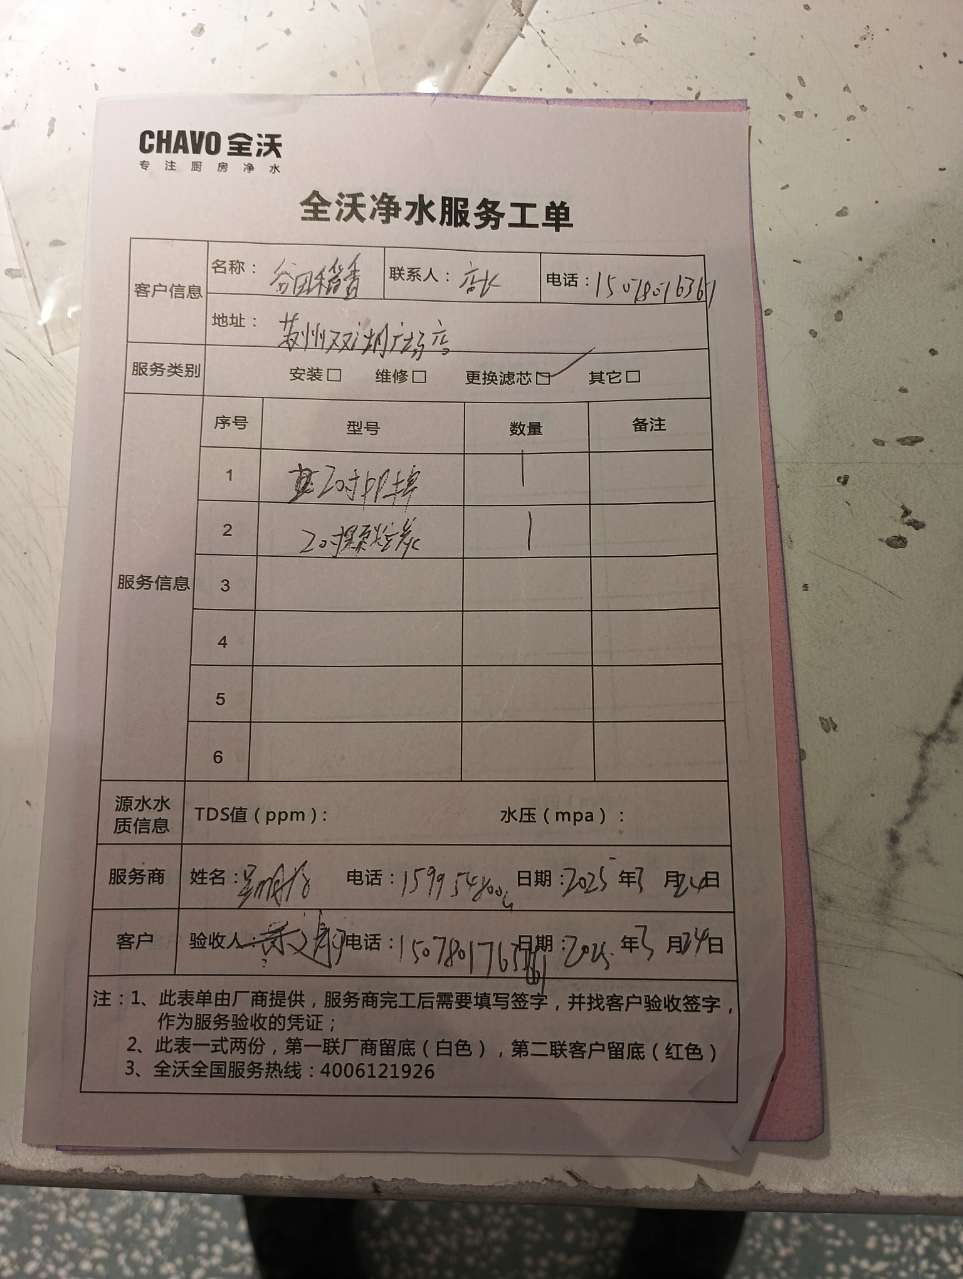 CHAVO 全沃
专注厨房净水
全沃净水服务工单
客户信息 名称：谷田稻香 联系人：店长 电话：15078016361
地址： 苏州双湖广场店
服务类别 安装□ 维修□ 更换滤芯☑ 其它□
服务信息 序号 型号 数量 备注
1 20寸PP棉 1
2 20寸颗粒炭 1
3
4
5
6
源水水质信息 TDS值（ppm）： 水压（mpa）：
服务商 姓名： 电话： 日期：2025年3月24日
客户 验收人： 电话： 日期：2025年3月24日
注：1、此表单由厂商提供，服务商完工后需要填写签字，并找客户验收签字，
作为服务验收的凭证；
2、此表一式两份，第一联厂商留底（白色），第二联客户留底（红色）
3、全沃全国服务热线：4006121926